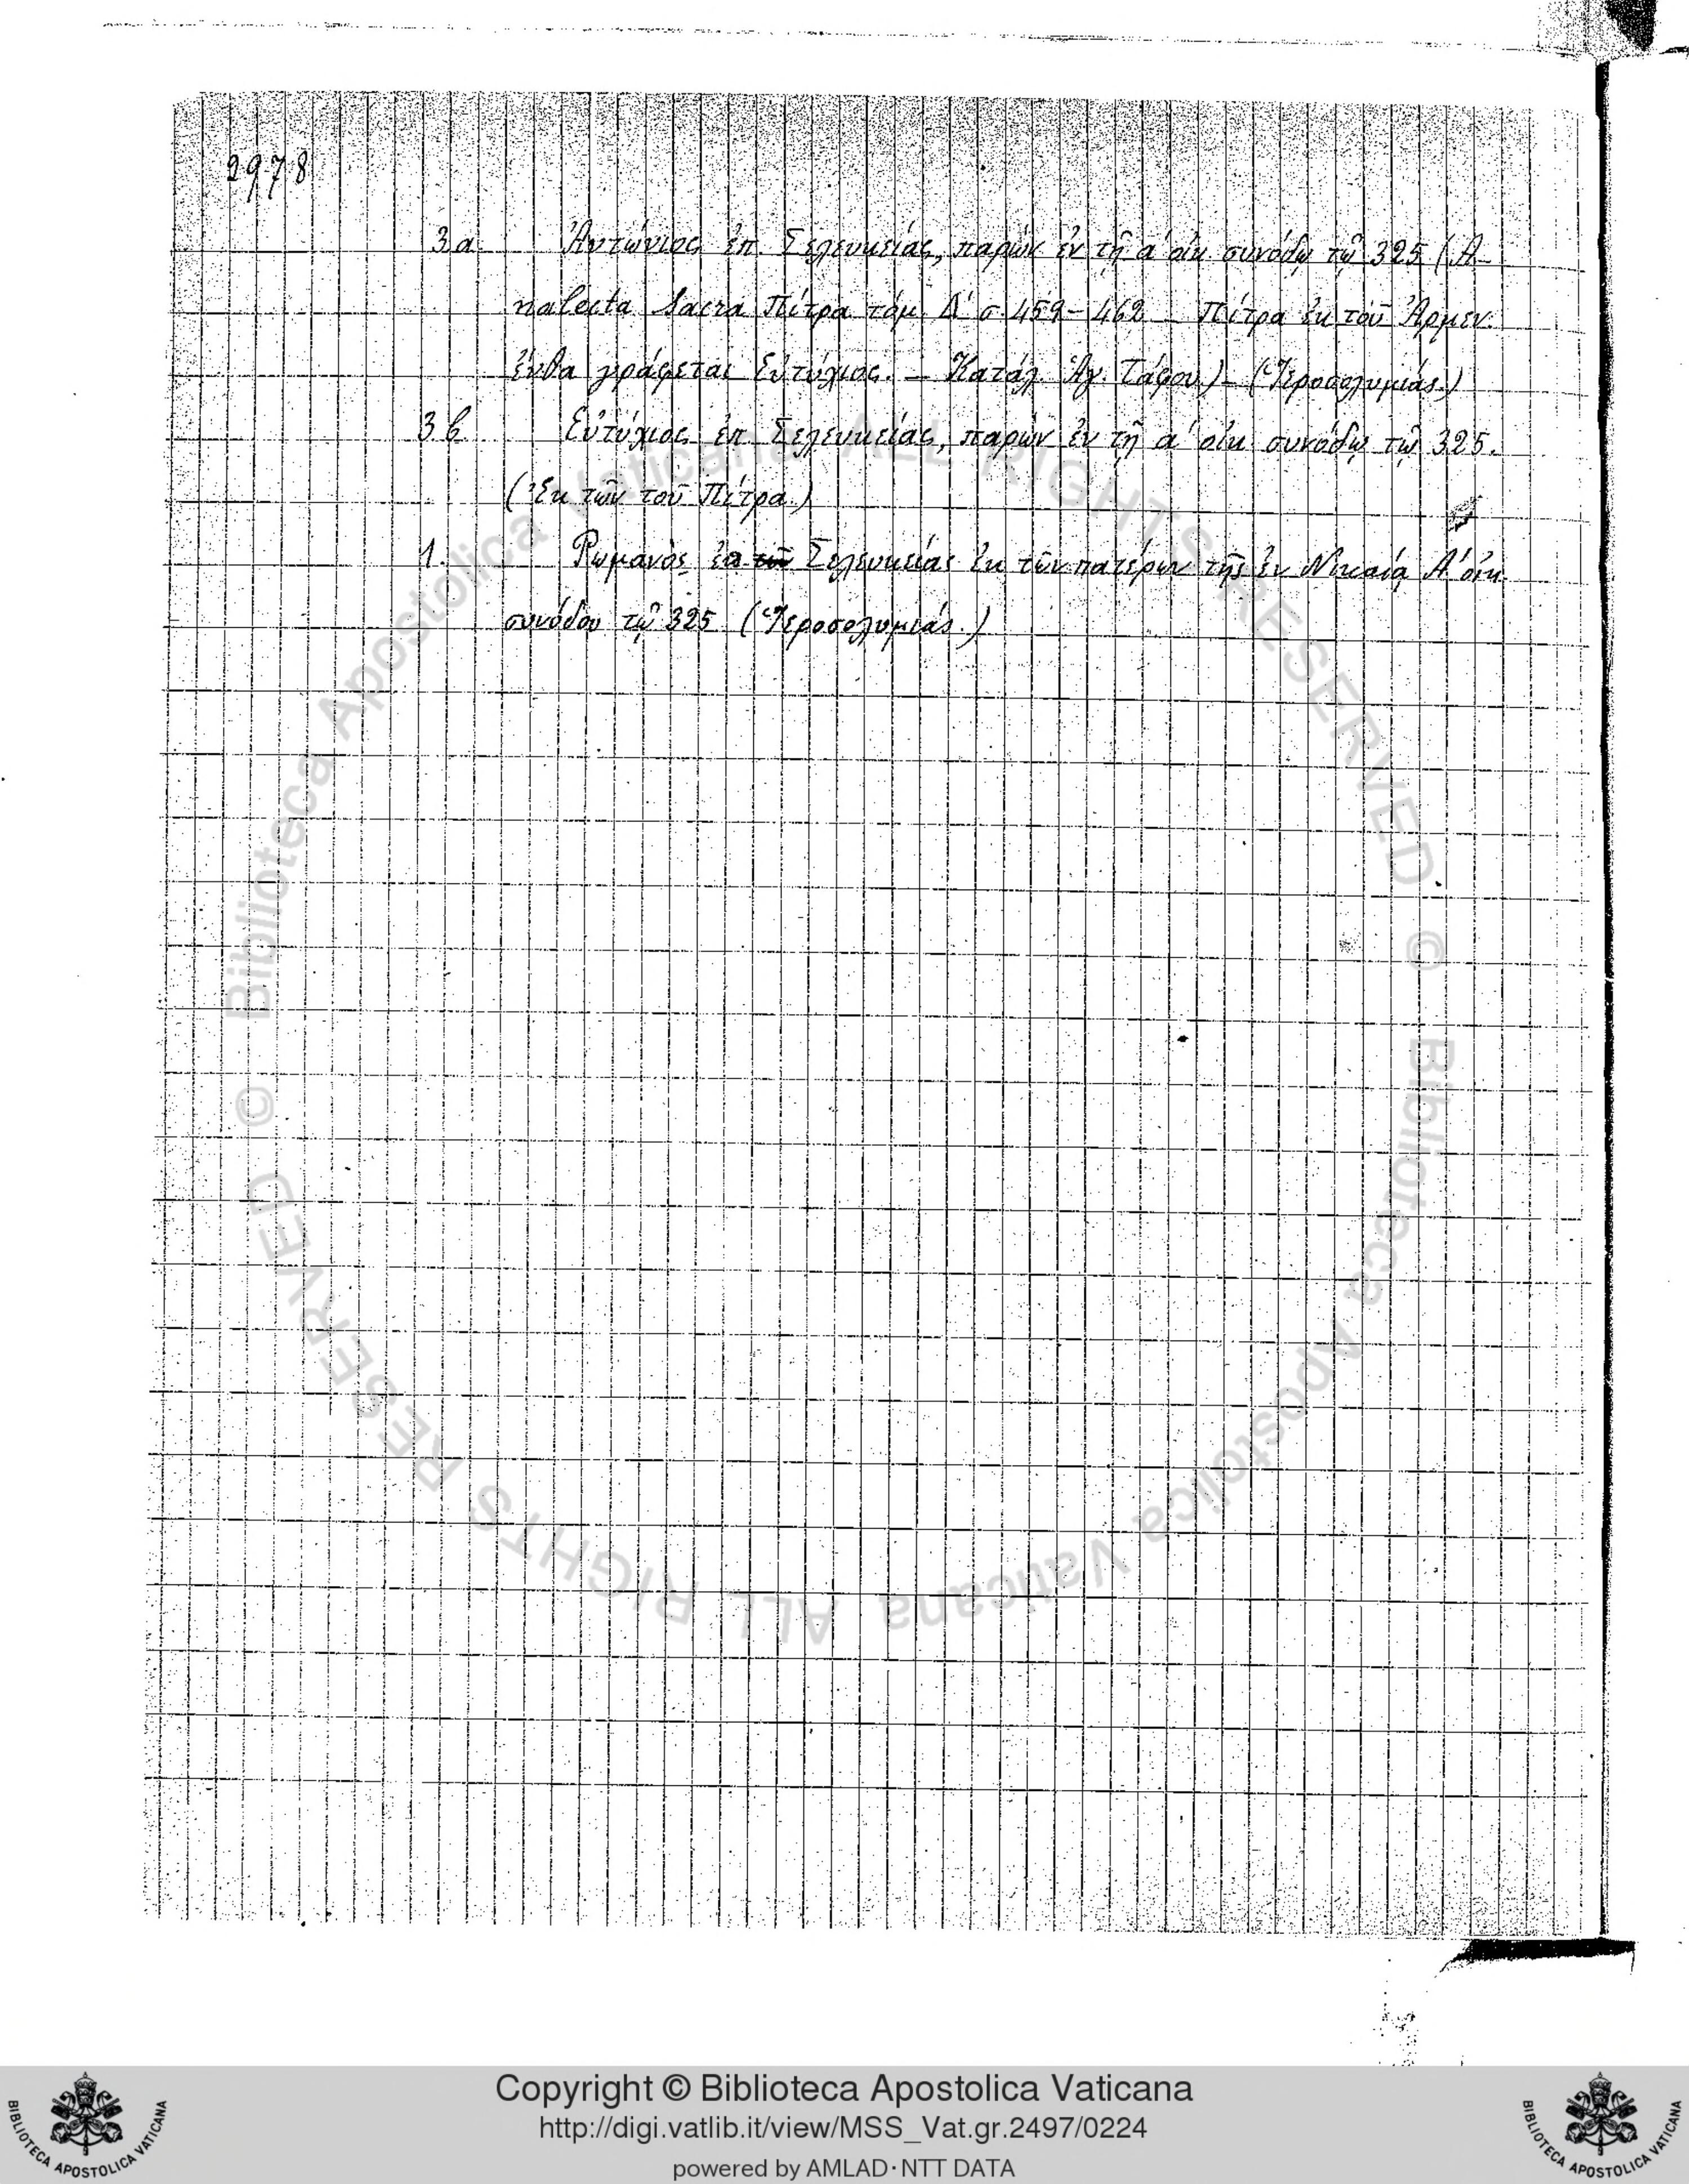 2978
3a. Ἀντώνιος ἐπ. Σελευκείας, παρὼν ἐν τῇ α' οἰκ. συνόδῳ τῷ 325 (A-
nalecta Sacra Πίτρα τόμ. Δ' σ. 459-462 – Πίτρα ἐκ τοῦ Ἀρμεν.
ἔνθα γράφεται Εὐτύχιος. – Κατάλ. Ἁγ. Τάφου) – (Ἱεροσολυμιάς.)
3b Εὐτύχιος ἐπ. Σελευκείας, παρὼν ἐν τῇ α' οἰκ. συνόδῳ τῷ 325.
(Ἐκ τῶν τοῦ Πίτρα.)
1. Ῥωμανὸς Σελευκείας ἐκ τῶν πατέρων τῆς ἐν Νικαίᾳ Α' οἰκ.
συνόδου τῷ 325 (Ἱεροσολυμιάς.)
© Biblioteca Apostolica Vaticana ALL RIGHTS RESERVED © Biblioteca Apostolica Vaticana ALL RIGHTS RESERVED
Copyright © Biblioteca Apostolica Vaticana
http://digi.vatlib.it/view/MSS_Vat.gr.2497/0224
powered by AMLAD·NTT DATA
BIBLIOTECA APOSTOLICA VATICANA
BIBLIOTECA APOSTOLICA VATICANA